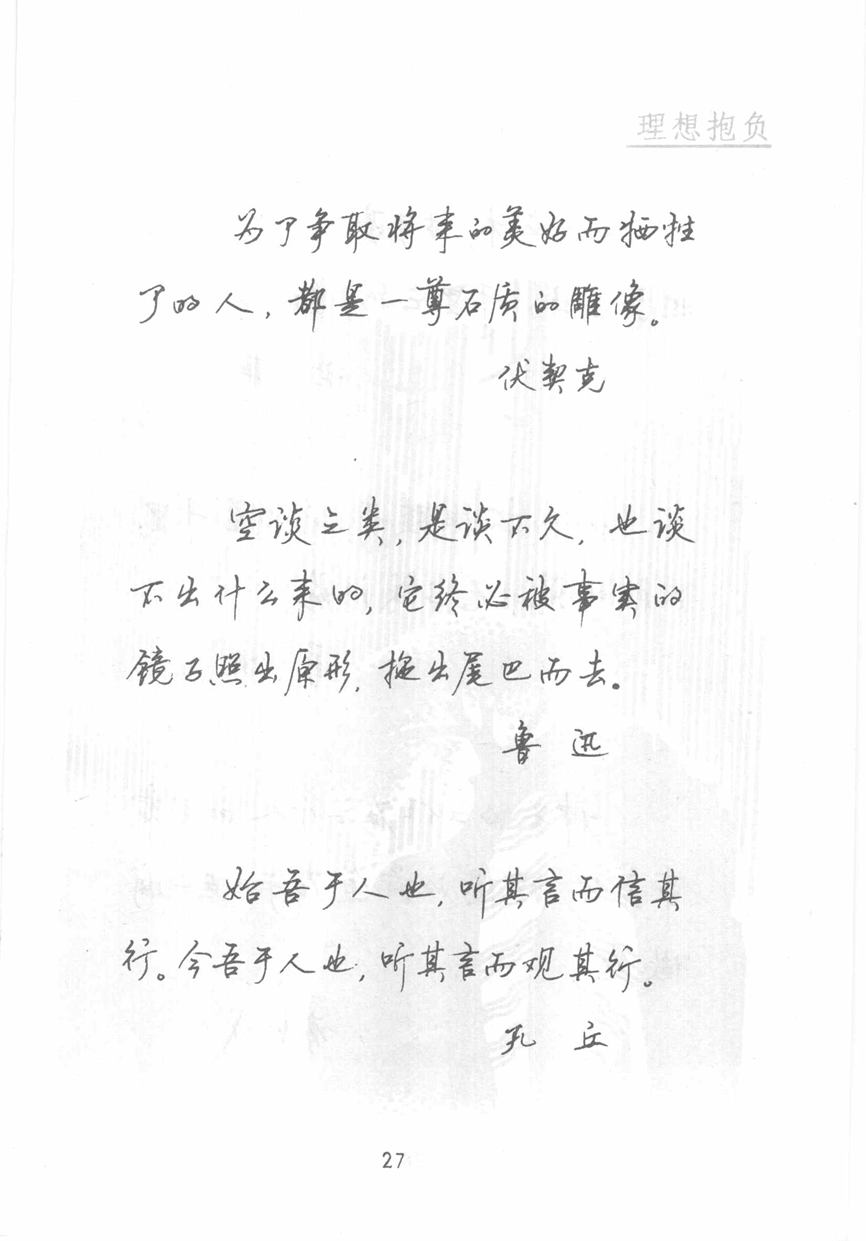 理想抱负
为了争取将来的美好而牺牲
了的人，都是一尊石质的雕像。
伏契克
空谈之类，是谈不久，也谈
不出什么来的，它终必被事实的
镜子照出原形，拖出尾巴而去。
鲁迅
始吾于人也，听其言而信其
行。今吾于人也，听其言而观其行。
孔丘
27